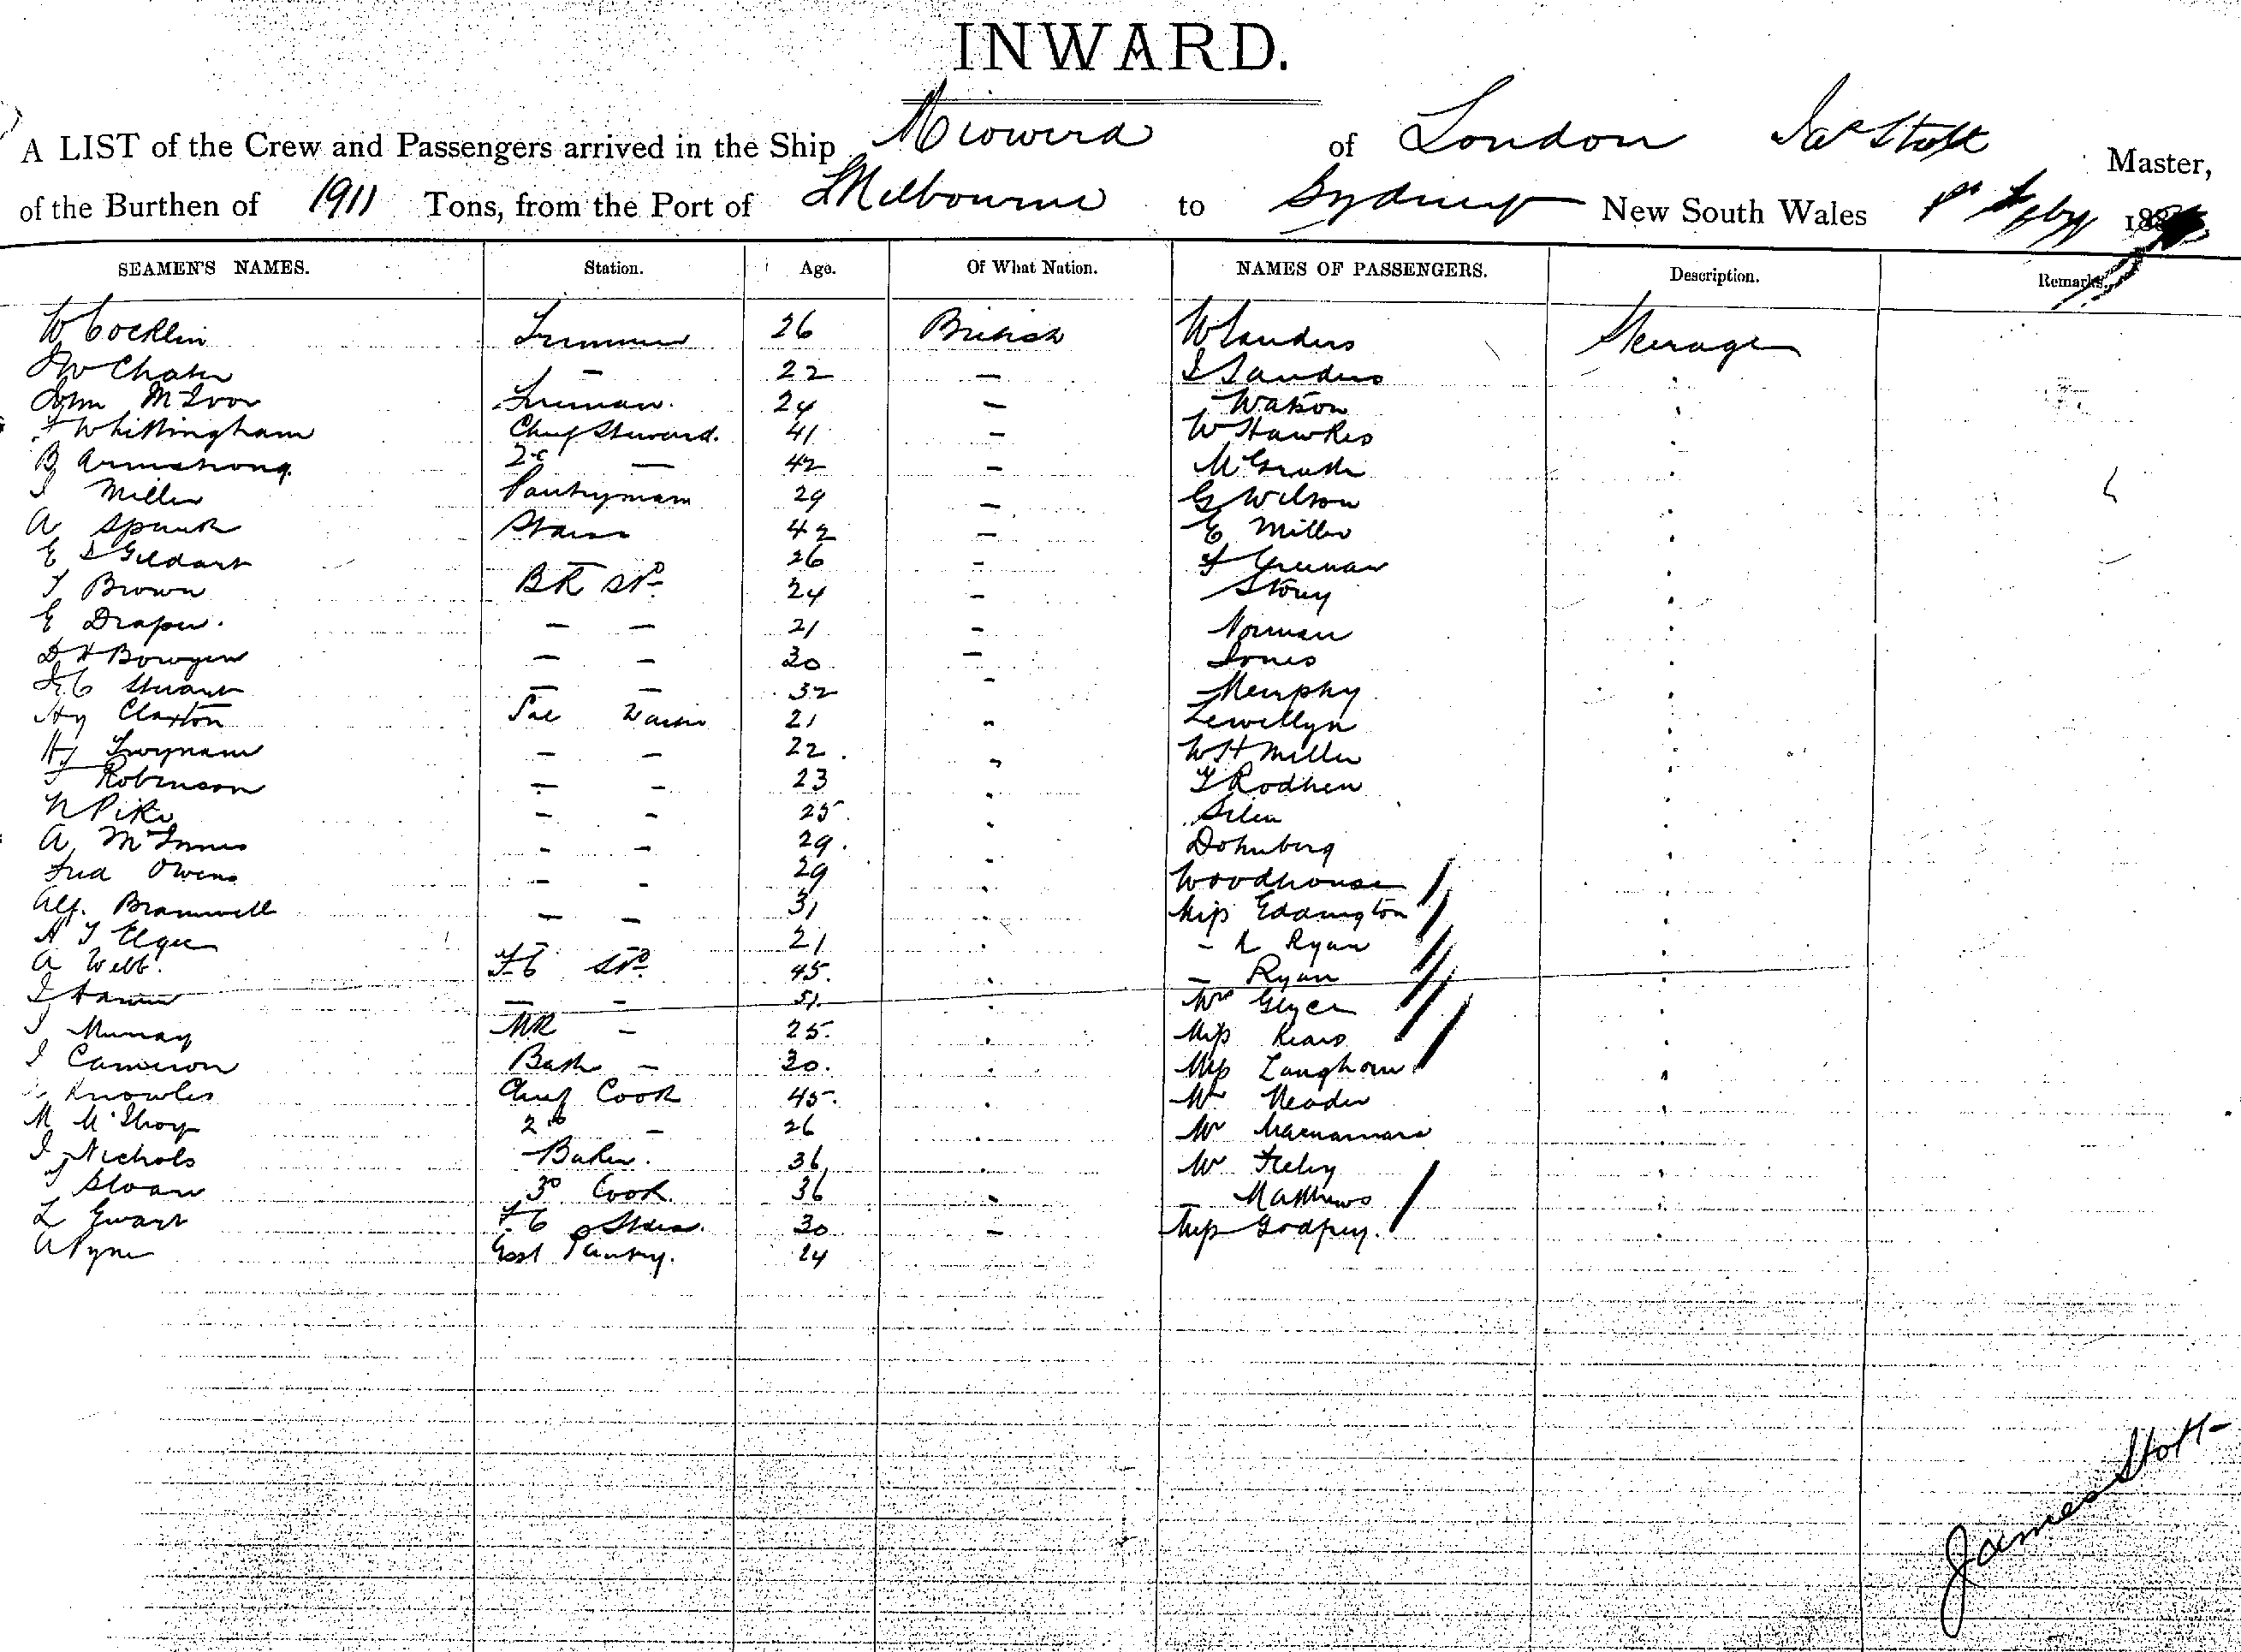 INWARD.
A LIST of the Crew and Passengers arrived in the Ship Miowera of London Jas Stott Master,
of the Burthen of 1911 Tons, from the Port of Melbourne to Sydney New South Wales 188
SEAMEN'S NAMES. Station. Age. Of What Nation. NAMES OF PASSENGERS. Description. Remarks.
W Cocklin Trimmer 26 British W Sanders Steerage
— 22 — J Sanders
John McIvor Fireman. 24 — Watson
F Whittingham Chief Steward. 41 — W Hawkes
B Armstrong. 2d — 42 —
J Miller Pantryman 29 — G Wilson
A 42 — E Miller
E S Geldart 26 — F
T Brown BR Std 24 — Story
E Draper. — — 21 — Norman
D H Bowyer — — 30 — Jones
J C Stuart — — 32 - Murphy
Hy Claxton Sal Waiter 21 " Lewellyn
Hy Twynam — — 22. " W H Miller
F Robinson — — 23 " T
N Pike — — 25. "
A McInnes - - 29. " Dohnberg
Fred Owens — - 29 " Woodhouse
Alf. Bramwell — — 31 " Miss Eddington
A T 21 " - Ryan
A Webb. F.C Std. 45. " — Ryan
J — - 51. " Mrs
J Murray MR — 25. " Miss
J Cameron Bath — 30. " Miss Langhorn
Knowles Chief Cook 45. " Mr Meader
M 2d — 26 " Mr Macnamara
J Nichols Baker. 36 " Mr
J Sloan 3d Cook 36 " — Matthews
L Ewart F.C 30 — Miss Godfrey.
A Pyne Asst Pantry. 24
James Stott